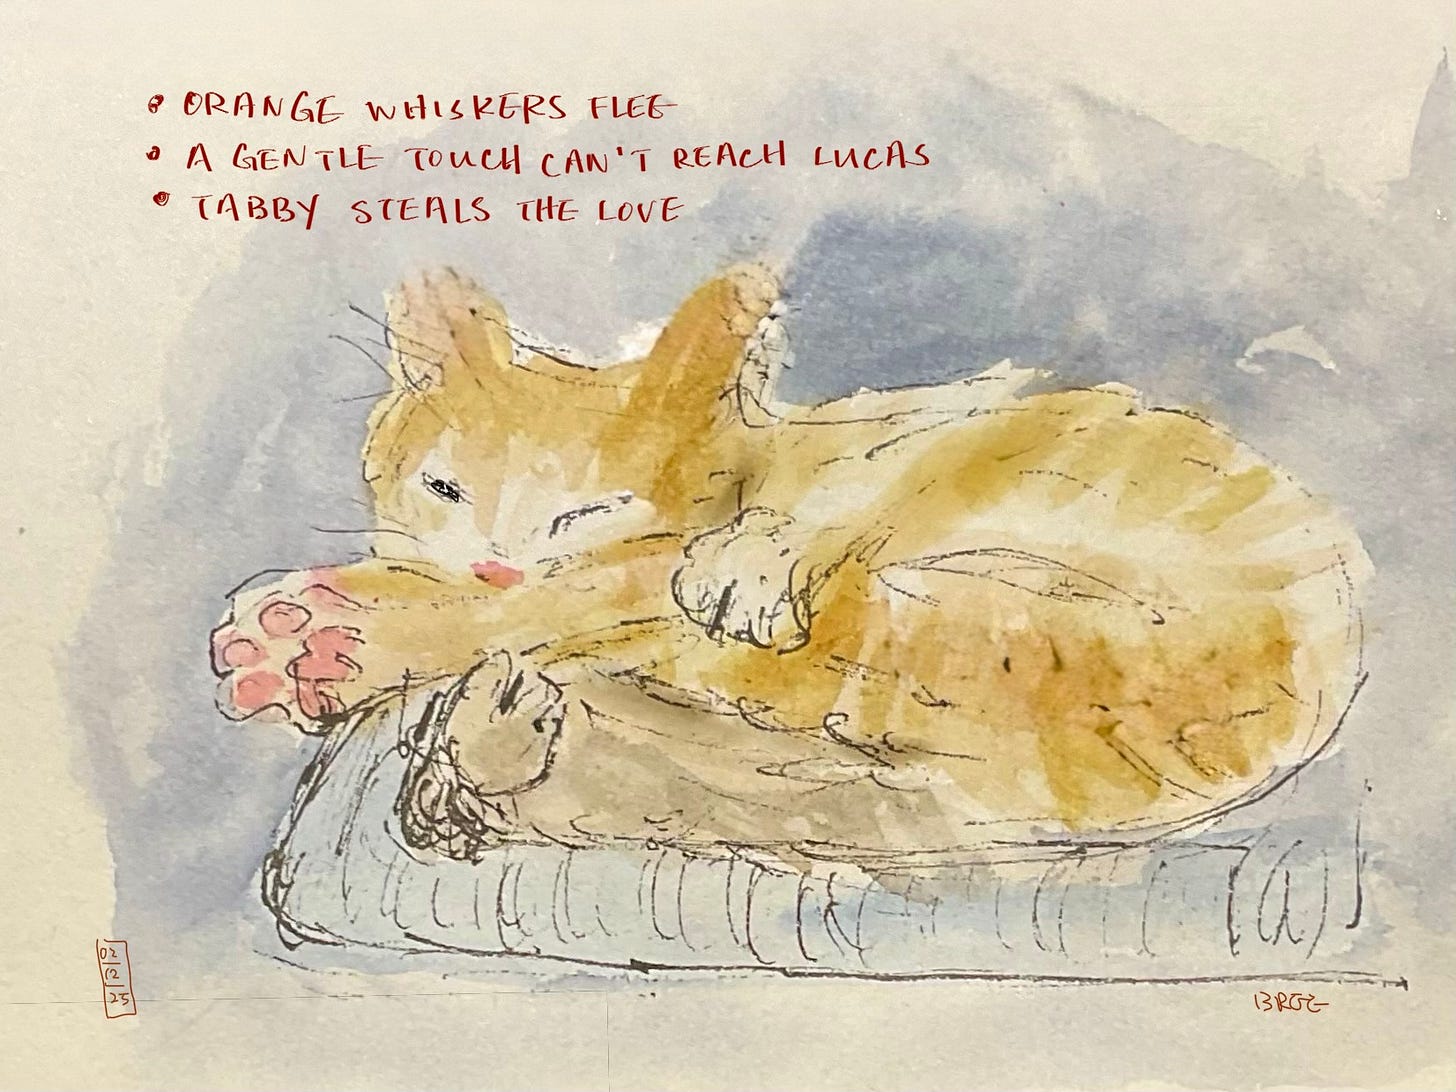 • ORANGE WHISKERS FLEE
• A GENTLE TOUCH CAN'T REACH LUCAS
• TABBY STEALS THE LOVE
02/12/25